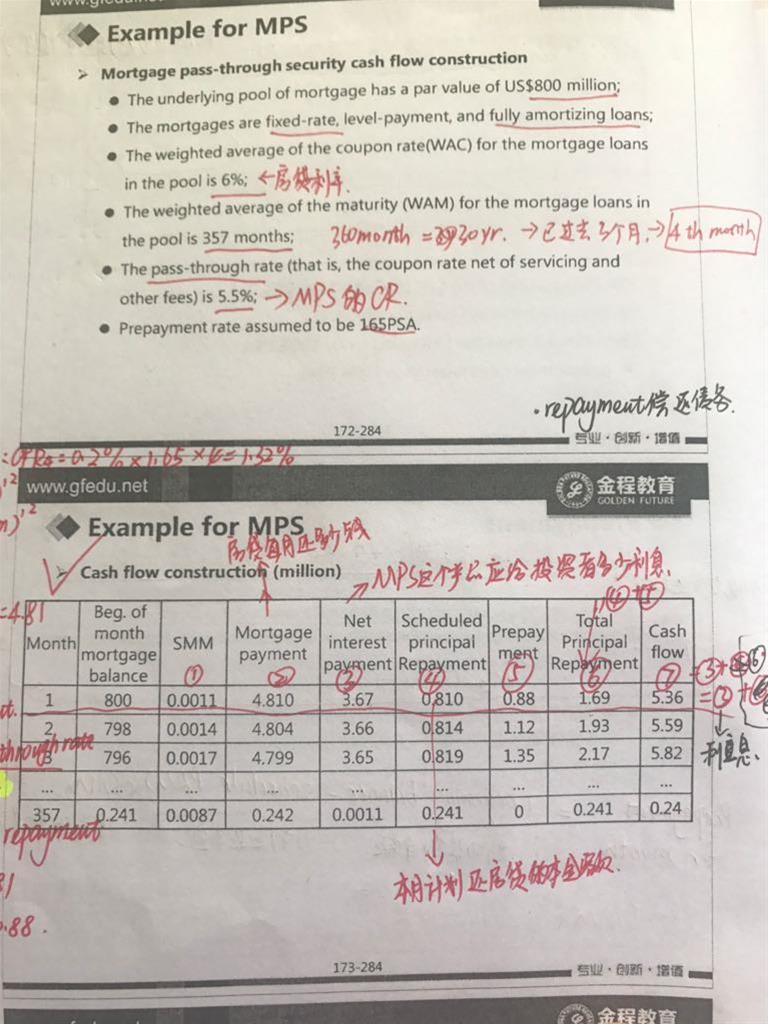 Example for MPS
➢ Mortgage pass-through security cash flow construction
● The underlying pool of mortgage has a par value of US$800 million;
● The mortgages are fixed-rate, level-payment, and fully amortizing loans;
● The weighted average of the coupon rate(WAC) for the mortgage loans
in the pool is 6%; ←房贷利率.
● The weighted average of the maturity (WAM) for the mortgage loans in
the pool is 357 months; 360month = 30yr. →已过去3个月.→ 4th month
● The pass-through rate (that is, the coupon rate net of servicing and
other fees) is 5.5%; →MPS的CR.
● Prepayment rate assumed to be 165PSA.
·repayment偿还债务.
172-284
专业·创新·增值
=0.2%×1.65×4=1.32%
www.gfedu.net
金程教育
GOLDEN FUTURE
Example for MPS
房贷每月还多少钱
➢ Cash flow construction (million)
MPS这个产品应给投资者多少利息.
=4.81
④+⑤
Month Beg. of month mortgage balance SMM ① Mortgage payment ② Net interest payment ③ Scheduled principal Repayment ④ Prepay ment ⑤ Total Principal Repayment ⑥ Cash flow ⑦
1 800 0.0011 4.810 3.67 0.810 0.88 1.69 5.36
2 798 0.0014 4.804 3.66 0.814 1.12 1.93 5.59
through rate
3 796 0.0017 4.799 3.65 0.819 1.35 2.17 5.82
利息
... ... ... ... ... ... ...
357 0.241 0.0087 0.242 0.0011 0.241 0 0.241 0.24
repayment
本月计划还房贷的本金
.88.
173-284
专业·创新·增值
金程教育